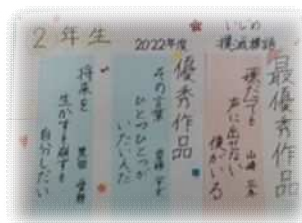 2年生
2022年度
いじめ
撲滅標語
最優秀作品
嫌だよと
声に出せない
僕がいる
優秀作品
その言葉
ひとつひとつが
いたいんだ
将来を
生かすも崩すも
自分しだい